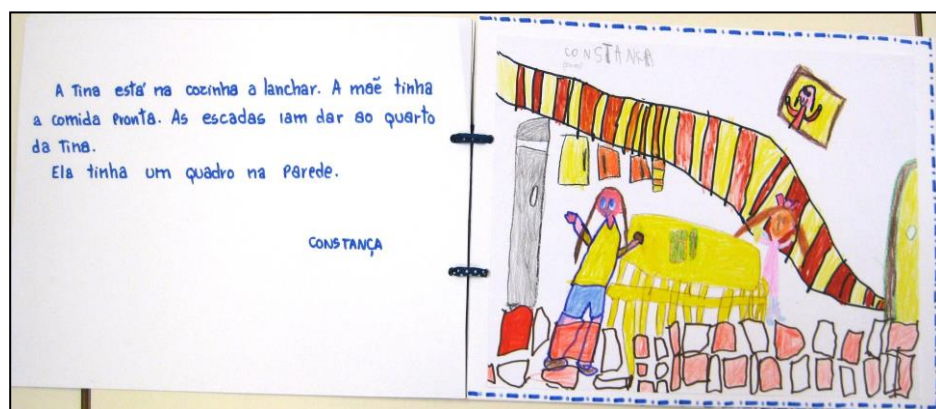 A Tina está na cozinha a lanchar. A mãe tinha
a comida pronta. As escadas iam dar ao quarto
da Tina.
Ela tinha um quadro na parede.
CONSTANÇA
CONSTANÇA